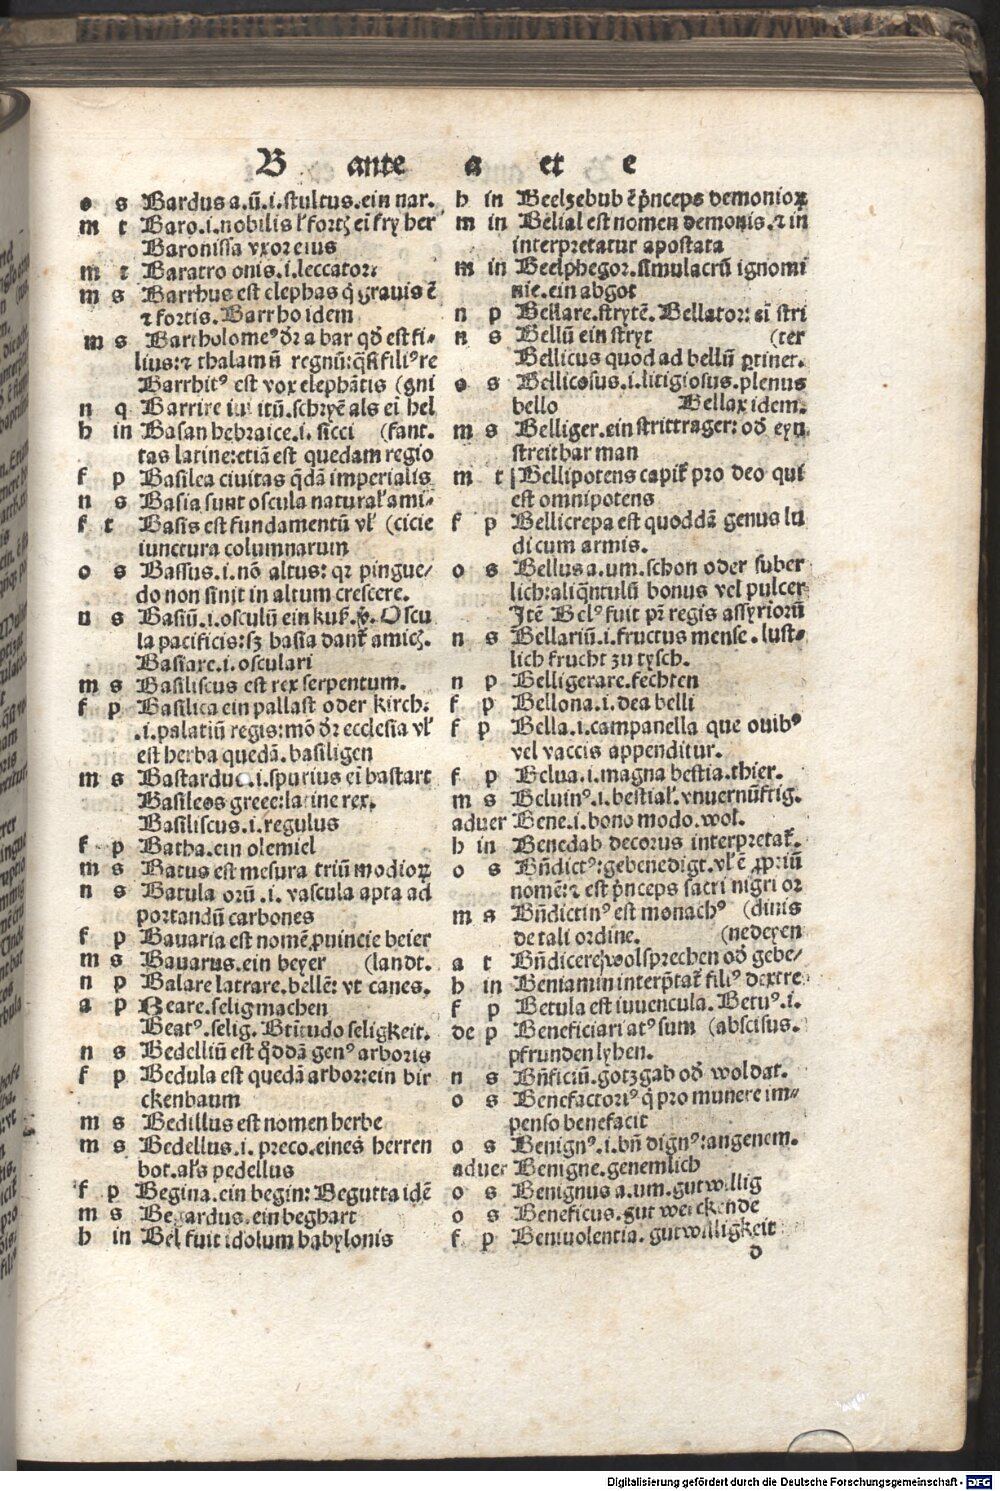 B ante a et e
o s Bardus a.ū.i.stultus.ein nar.
m t Baro.i.nobilis ł fortꝫ eī fry her
Baronissa vxor eius
m t Baratro onis.i.leccator:
m s Barrhus est elephas q̄ grauis ē
⁊ fortis. Barrho idem
m s Bartholomeꝰ dr̄ a bar qd̄ est fi-
lius:⁊ thalamn̄ regnū:q̄si filiꝰ re
Barrhitꝰ est vox elephātis (gni
n q Barrire itū.schryē als eī hel
h in Basan hebraice.i. sicci (fant.
tas latine:etiā est quedam regio
f p Basilea ciuitas q̄dā imperialis
n s Basia sunt oscula natural̓ ami-
f t Basis est fundamentū vł (cicie
iunctura columnarum
o s Bassus.i.nō altus: qꝛ pingue/
do non sinit in altum crescere.
n s Basiū.i.osculū ein kuß. v̓. Oscu
la pacificis:sꝫ basia dant̄ amicꝭ.
Basiare.i.osculari
m s Basiliscus est rex serpentum.
f p Basilica ein pallast oder kirch.
.i.palatiū regis:mō dr̄ ecclesia vł
est herba quedā.basiligen
m s Bastardus.i.spurius eī bastart
Basileos grece:latine rex.
Basiliscus.i.regulus
f p Batha.ein olemiel
m s Batus est mesura triū modioꝝ
n s Batula orū.i.vascula apta ad
portandū carbones
f p Bauaria est nomē ꝓuincie beier
m s Bauarus.ein beyer (landt.
n p Balare latrare.bellē: vt canes.
a p Beare.selig machen
Beatꝰ.selig. Btitudo seligkeit.
n s Bedelliū est q̄ddā genꝰ arboris
f p Bedula est quedā arbor:ein bir
ckenbaum
m s Bedillus est nomen herbe
m s Bedellus.i.preco.eines herren
bot.als pedellus
f p Begina.ein begin: Begutta idē
m s Begardus.ein beghart
h in Bel fuit idolum babylonis
h in Beelzebub ē p̄nceps demonioꝝ
m in Belial est nomen demonis.⁊ in
interpretatur apostata
m in Beelphegor.simulacrū ignomi
nie.ein abgot
n p Bellare.strytē. Bellator: eī stri
n s Bellū ein stryt (ter
Bellicus quod ad bellū ꝑtinet.
o s Bellicosus.i.litigiosus.plenus
bello Bellax idem.
m s Belliger.ein strittrager: od̓ eyn
streitbar man
m t Bellipotens capit̄ pro deo qui
est omnipotens
f p Bellicrepa est quoddā genus lu
di cum armis.
o s Bellus a.um.schon oder suber
lich:aliq̄ntulū bonus vel pulcer
Itē Belꝰ fuit pr̄ regis assyriorū
n s Bellariū.i.fructus mense.lust-
lich frucht zu tysch.
n p Belligerare.fechten
f p Bellona.i.dea belli
f p Bella.i.campanella que ouibꝰ
vel vaccis appenditur.
f p Belua.i.magna bestia.thier.
m s Beluinꝰ.i.bestial̓.vnuernūftig.
aduer Bene.i.bono modo.wol.
h in Benedab decorus interpretat̄.
o s Bn̄dictꝰ:gebenedigt.vł ē ꝓpriū
nomē:⁊ est p̄nceps sacri nigri or
m s Bn̄dictinꝰ est monachꝰ (dinis
de tali ordine. (nedeyen
a t Bn̄dicere wolsprechen od̓ gebe/
h in Beniamin interp̄tat̄ filiꝰ dextre
f p Betula est iuuencula. Betuꝰ.i.
de p Beneficiari atꝰ sum (abscisus.
pfrunden lyhen.
n s Bn̄ficiū.gotzgab od̓ woldat.
o s Benefactoriꝰ q̄ pro munere im-
penso benefacit
o s Benignꝰ.i.bn̄ dignꝰ:angenem.
aduer Benigne.genemlich
o s Benignus a.um.gutwillig
o s Beneficus.gut werckende
f p Beniuolentia. gutwilligkeit
d
Digitalisierung gefördert durch die Deutsche Forschungsgemeinschaft - DFG